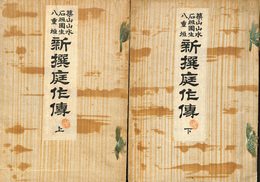 築山山水
石組園生
八重垣
新撰庭作傳
上
築山山水
石組園生
八重垣
新撰庭作傳
下